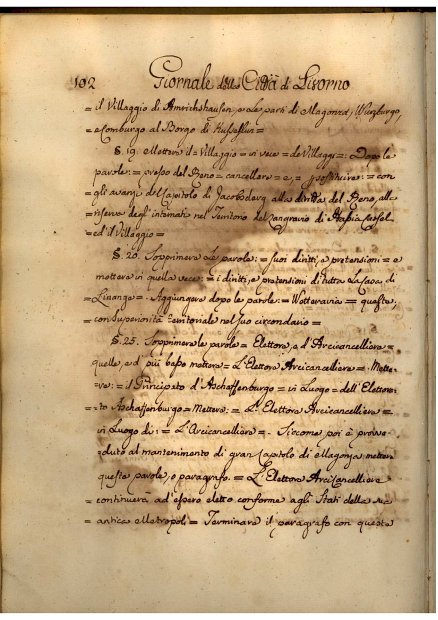 102 Giornale della Città di Livorno
= il Villaggio di Amrichshausen, e le parti di Magonza, Wurzburgo,
= e Comburgo al Borgo di
§. 19. Mettere il = Villaggio = in vece = de Villaggi =: Dopo le
parole: = presso del Reno = cancellare = e, = sostituire: = con
= gli avanzi del Capitolo di Jacobsberg alla diritta del Reno, alla
= riserva degl' internati nel Territorio del Langravio di Hassia Cassel
= ed il Villaggio =
§. 20. Sopprimere Le parole: = suoi diritti, e pretensioni = e
mettere in quella vece: = i diritti, e pretensioni di tutta La Casa di
= Linange = Aggiungere dopo le parole: = Wetteravia = queste,
= con Superiorità Territoriale nel suo circondario =
§. 25. Sopprimere le parole = Elettore, e d'Arcicancelliere =
quelle, ed più basso mettere = L'Elettore Arcicancelliere = Mette=
=re: = il Principato d'Aschaffenburgo = in Luogo = dell'Elettora=
=to Aschaffenburgo = Mettere: = L'Elettore Arcicancelliere =
in Luogo di: = L'Arcicancelliere = Siccome poi è provve=
=duto al mantenimento di gran Capitolo di Magonza mettere
queste parole, o paragrafo. = L'Elettore Arcicancelliere
= continuerà ad essere eletto conforme agli Stati della sua
= antica Metropoli = Terminare il paragrafo con queste